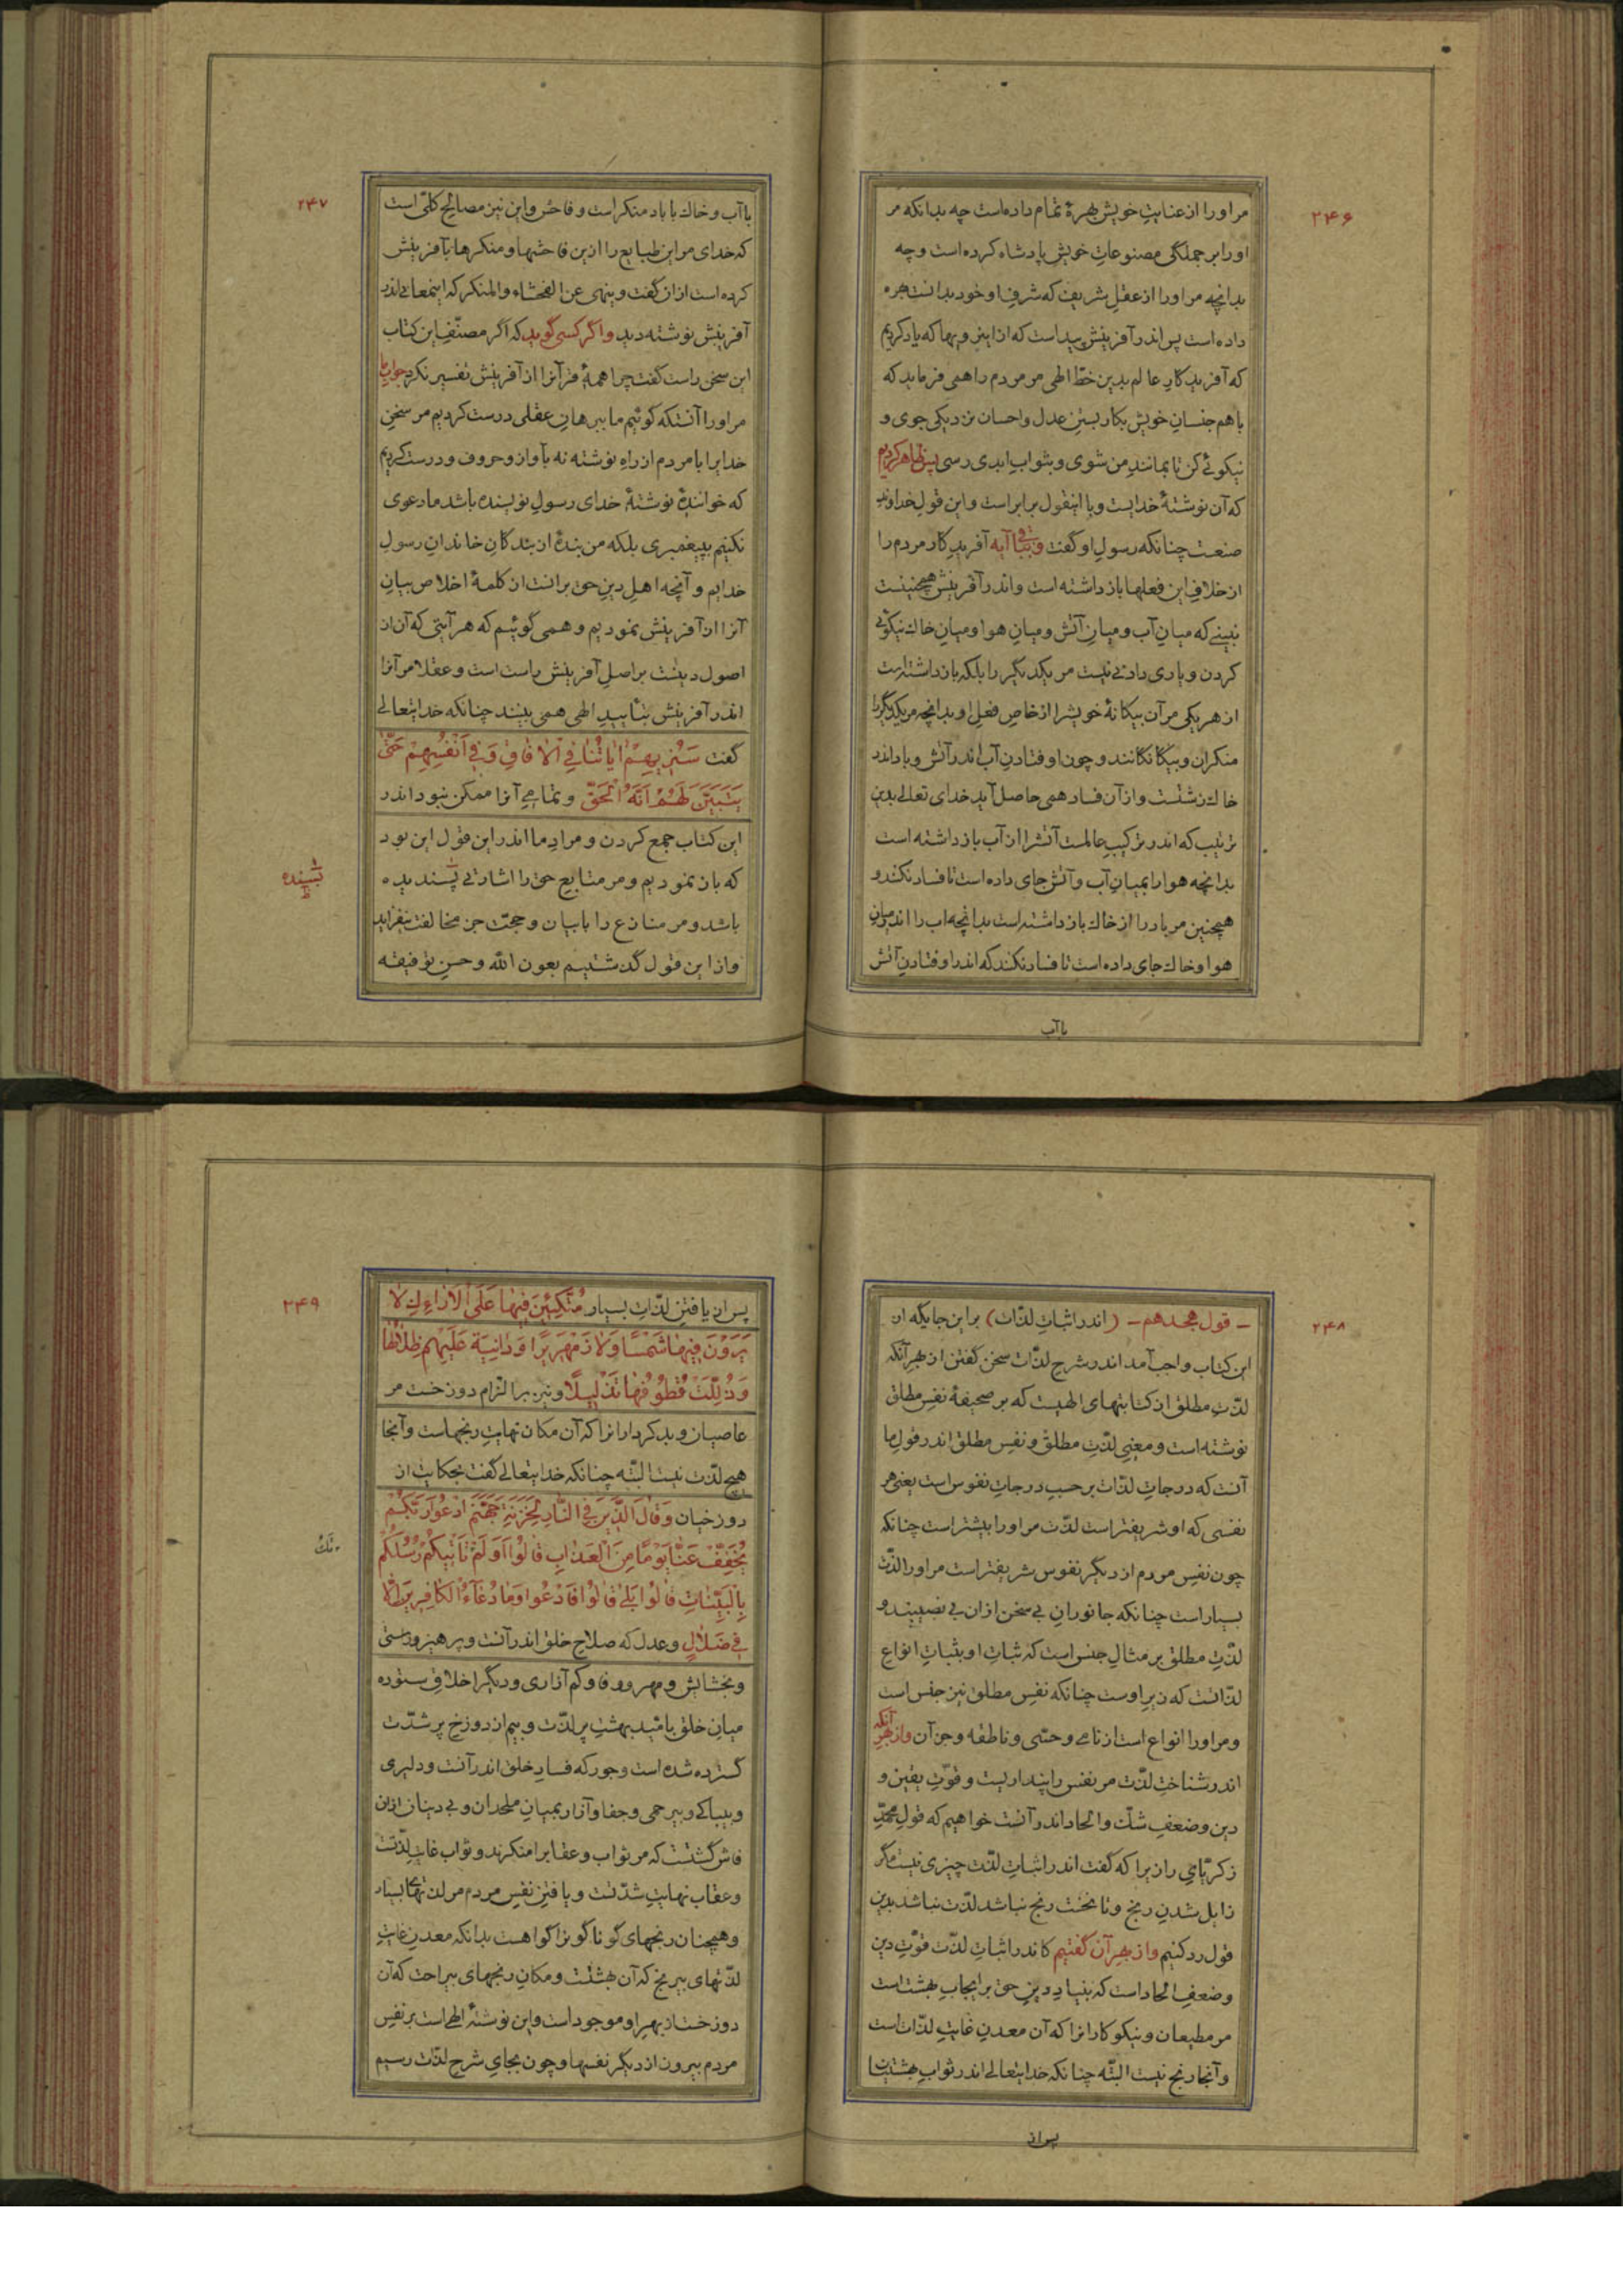 ۲۴۶
مر اورا از عنایت خویش بهرهٔ تمام داده است چه بدانکه مر
اورا بر جملگی مصنوعاتِ خویش پادشاه کرده است و چه
بدانچه مر اورا از عقلِ شریف که شرفِ او خود بدانست بهره
داده است پس اندر آفرینش پیداست که از این رویها که یاد کردیم
که آفریدکار عالم بدین خطّ الهی مر مردم را همی فرماید که
با هم جنسانِ خویش بکار بستنِ عدل و احسان نزدیکی جوی و
نیکوئی کن تا بمانندِ من شوی و بثوابِ ابدی رسی پس ظاهر کردیم
که آن نوشتهٔ خدایست و با اینقول برابر است و این قولِ خداوندِ
صنعت چنانکه رسولِ او گفت و باقی آیه آفریدکار مردم را
از خلافِ این فعلها باز داشته است و اندر آفرینش همچنینست
نبینی که میانِ آب و میانِ آتش و میانِ هوا و میانِ خاك نیکوئی
کردن و یاری دادنی نیست مر یکدیگر را بلکه باز داشتست
از هر یکی مر آن بیکانهٔ خویشرا از خاصِ فعلِ او بدانچه مر یکدیگر را
منکران و بیکانکانند و چون اوفتادنِ آب اندر آتش و باد اندر
خاك زشتست و از آن فساد همی حاصل آید خدای تعالی بدین
ترتیب که اندر ترکیبِ عالمست آتشرا از آب باز داشته است
بدانچه هوا را بمیانِ آب و آتش جای داده است تا فساد نکنند و
همچنین مر باد را از خاك باز داشته است بدانچه اب را اندر میانِ
هوا و خاك جای داده است تا فساد نکند که اندر اوفتادنِ آتش
با آب
۲۴۷
با آب و خاك با باد منکر است و فاحش و این نیز مصالحِ کلّی است
که خدای مر این طبایع را ازین فاحشها و منکرها بآفرینش
کرده است از ان گفت وینهی عن الفحشاء والمنکر که اینمعانی اندر
آفرینش نوشته دید واگر کسی گوید که اگر مصنّفِ این کتاب
این سخن راست گفت چرا همهٔ قرآنرا از آفرینش تفسیر نکرد جوابِ ما
مر اورا آنستکه گوئیم ما ببرهانِ عقلی درست کردیم مر سخنِ
خدایرا با مردم از راهِ نوشته نه بآواز و حروف و درست کردیم
که خوانندهٔ نوشتهٔ خدای رسولِ نویسنده باشد ما دعوی
نکنیم بپیغمبری بلکه من بندهٔ از بندکانِ خاندانِ رسولِ
خدایم و آنچه اهلِ دینِ حق برانست از کلمهٔ اخلاص بیانِ
آنرا از آفرینش نمودیم و همی گوئیم که هر آیتی که آن از
اصول دینست بر اصلِ آفرینش راست است و عقلا مر آنرا
اندر آفرینش بتأییدِ الهی همی بینند چنانکه خدایتعالی
گفت سَنُرِیهِمْ اٰیَاتُنَا فِی الْاٰفَاقِ وَفِی اَنْفُسِهِمْ حَتّٰی
یَتَبَیَّنَ لَهُمْ اَنَّهُ الْحَقُّ و تمامیِ آنرا ممکن نبود اندر
این کتاب جمع کردن و مرادِ ما اندر این قول این بود
که باز نمودیم و مر متابعِ حق را اشارتی پسندیده
پسنده
ظ
باشد و مر منازع را با بیان و حجّت جز مخالفت نیفزاید
و از این قول گذشتیم بعون الله و حسنِ توفیقه
۲۴۸
ـ قول هجدهم ـ (اندر اثباتِ لذّات) بر این جایگه از
این کتاب واجب آمد اندر شرحِ لذّات سخن گفتن از بهر آنکه
لذّتِ مطلق از کتابتهای الهیست که بر صحیفهٔ نفسِ مطلق
نوشته است و معنیِ لذّتِ مطلق و نفسِ مطلق اندر قولِ ما
آنست که درجاتِ لذّات بر حسبِ درجاتِ نفوس است یعنی هر
نفسی که او شریفتر است لذّت مر اورا بیشتر است چنانکه
چون نفسِ مردم از دیگر نفوس شریفتر است مر اورا لذّت
بسیار است چنانکه جانورانِ بی سخن ازان بی نصیبند و
لذّتِ مطلق بر مثالِ جنس است که ثباتِ او بثباتِ انواعِ
لذّاتست که زیرِ اوست چنانکه نفسِ مطلق نیز جنس است
و مر اورا انواع است از نامی و حسّی و ناطقه و جز آن و از بهرِ آنکه
اندر شناختِ لذّت مر نفس را پنداریست و قوّتِ یقین و
دین و ضعفِ شك و الحاد اندر آنست خواهیم که قولِ محمّدِ
زکریّا‌یِ رازیرا که گفت اندر اثباتِ لذّت چیزی نیست مگر
زایل شدنِ رنج و تا نخست رنج نباشد لذّت نباشد بدین
قول رد کنیم و از بهرِ آن گفتیم کاندر اثباتِ لذّت قوّتِ دین
و ضعفِ الحاد است که بنیادِ دینِ حق بر ایجابِ بهشت است
مر مطیعان و نیکوکارانرا که آن معدنِ غایتِ لذّات است
و آنجا رنج نیست البتّه چنانکه خدایتعالی اندر ثوابِ بهشتیان
پس از
۲۴۹
پس از یافتنِ لذّاتِ بسیار مُتَّکِئِینَ فِیهَا عَلَی الْاَرَاءِكِ لَا
یَرَوْنَ فِیهَا شَمْسًا وَلَا زَمْهَرِیرًا وَدَانِیَةً عَلَیْهِمْ ظِلَالُهَا
وَذُلِّلَتْ قُطُوفُهَا تَذْلِیلًا و نیز بر الزامِ دوزخست مر
عاصیان و بدکردارانرا که آن مکان نهایتِ رنجهاست و آنجا
هیچ لذّت نیست البتّه چنانکه خدایتعالی گفت بحکایت از
دوزخیان وَقَالَ الَّذِینَ فِی النَّارِ لِخَزَنَةِ جَهَنَّمَ ادْعُوا رَبَّکُمْ
یُخَفِّفْ عَنَّا یَوْمًا مِنَ الْعَذَابِ قَالُوا اَوَلَمْ تَاْتِیکُمْ رُسُلُکُمْ
بِالْبَیِّنَاتِ قَالُوا بَلٰی قَالُوا فَادْعُوا وَمَا دُعَاءُ الْکَافِرِینَ اِلَّا
فِی ضَلَالٍ و عدل که صلاحِ خلق اندر آنست و پرهیز و راستی
و بخشایش و مهر و وفا و کم آزاری و دیگر اخلاقِ ستوده
میانِ خلق بامّیدِ بهشتِ پر لذّت و بیم از دوزخِ پر شدّت
گسترده شده است و جور که فسادِ خلق اندر آنست و دلیری
و بیباکی و بیرحمی و جفا و آزار بمیانِ ملحدان و بی دینان ازان
فاش گشتست که مر ثواب و عقابرا منکرند و ثواب غایتِ لذّتست
و عقاب نهایتِ شدّتست و یافتنِ نفسِ مردم مر لذّتهای بسیار
و همچنان رنجهای گوناگونرا گواهست بدانکه معدنِ غایتِ
لذّتهای بیرنج که آن بهشتست و مکانِ رنجهای بیراحت که آن
دوزخست از بهرِ او موجود است و این نوشتهٔ الهی است بر نفسِ
مردم بیرون از دیگر نفسها و چون بجایِ شرحِ لذّت رسیم